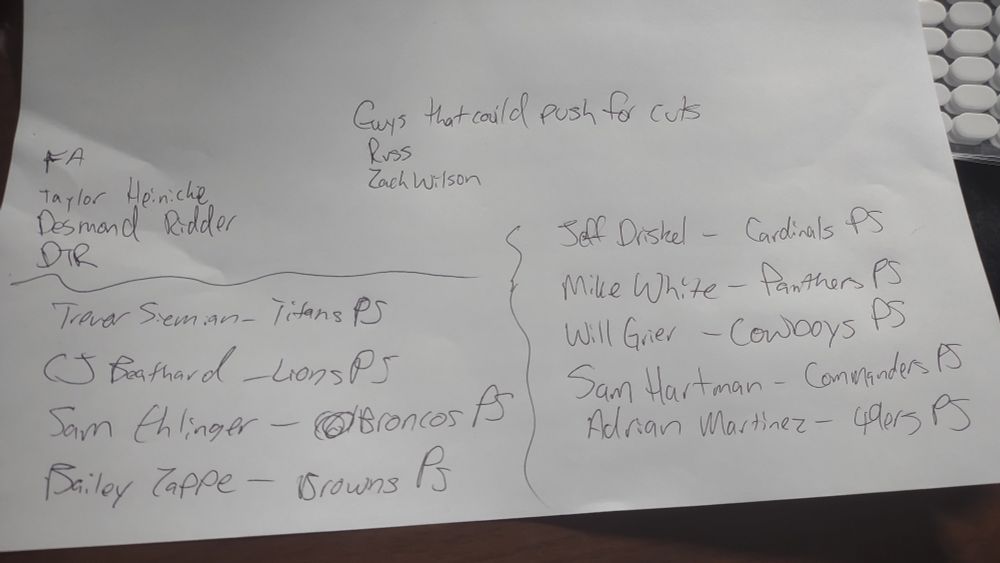 Guys that could push for cuts
Russ
Zach Wilson
FA
Taylor Heinicke
Desmond Ridder
DTR
Trevor Siemian - Titans PS
CJ Beathard - Lions PS
Sam Ehlinger - Broncos PS
Bailey Zappe - Browns PS
Jeff Driskel - Cardinals PS
Mike White - Panthers PS
Will Grier - Cowboys PS
Sam Hartman - Commanders PS
Adrian Martinez - 49ers PS